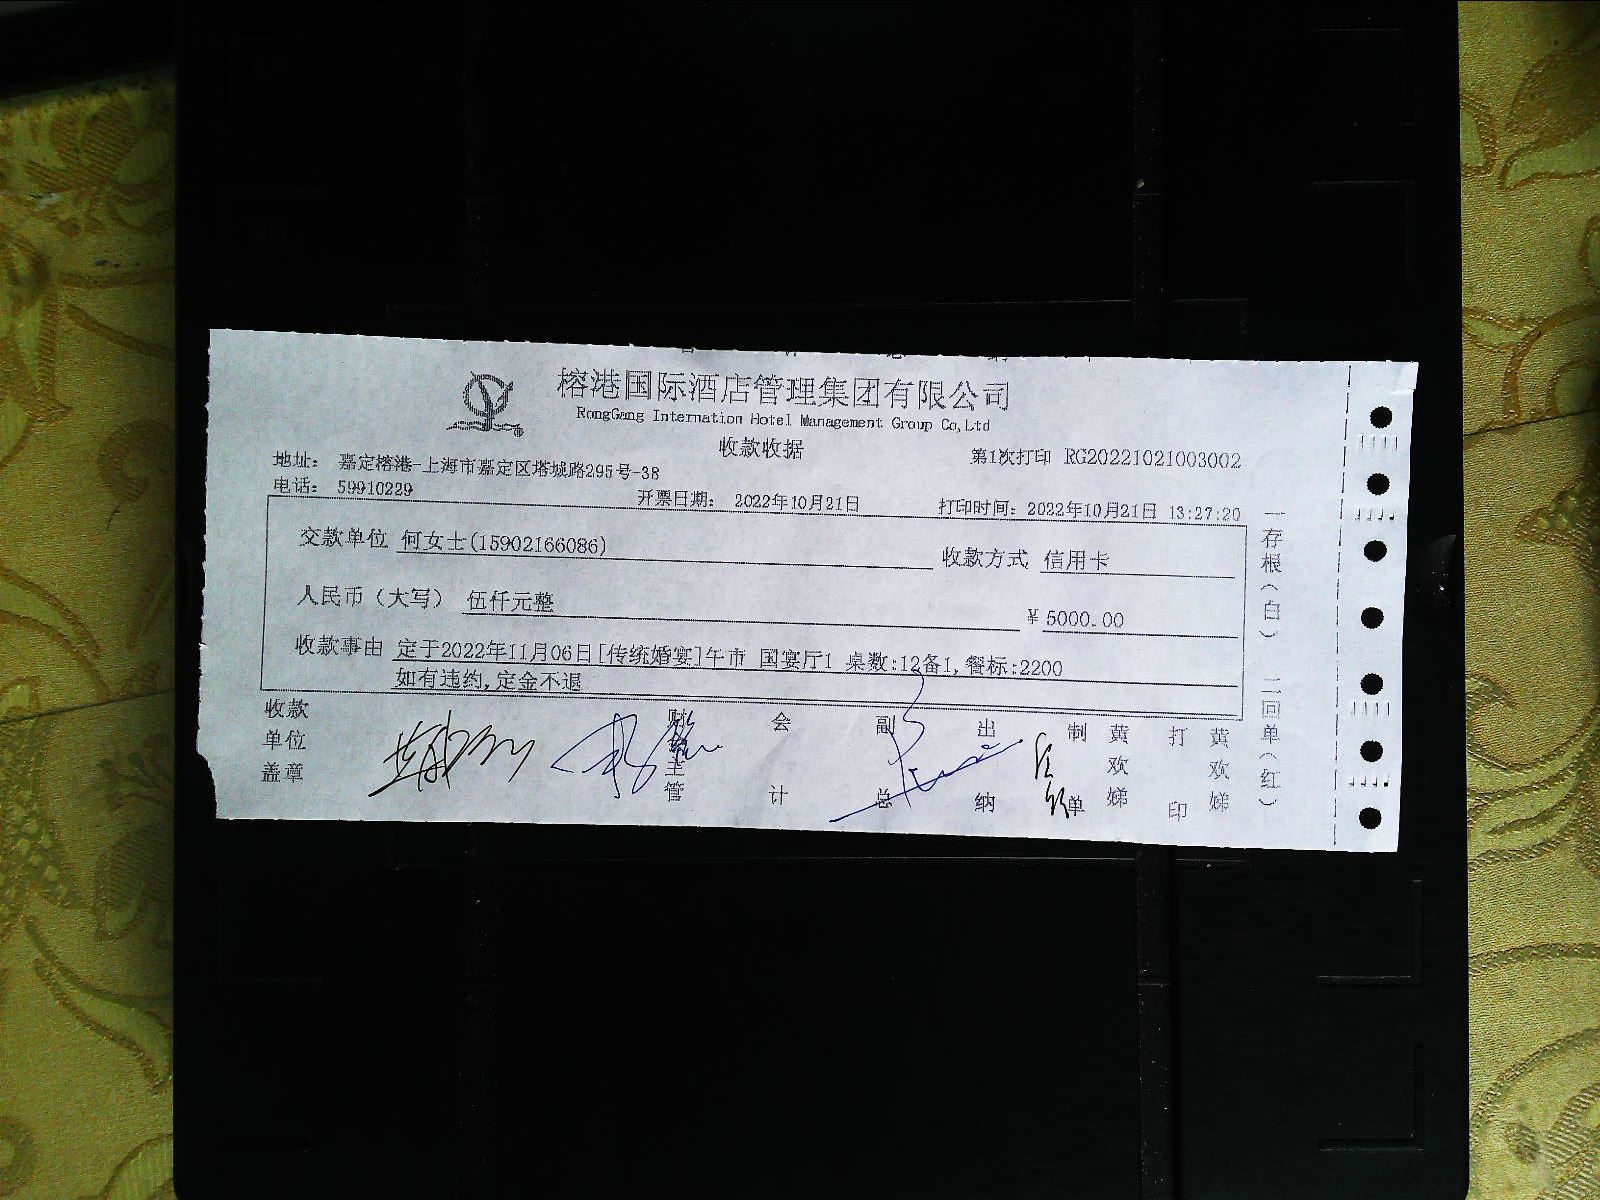 榕港国际酒店管理集团有限公司
RongGang Internation Hotel Management Group Co,Ltd
收款收据
第1次打印 RG20221021003002
地址： 嘉定榕港-上海市嘉定区塔城路295号-38
电话： 59910229
开票日期： 2022年10月21日
打印时间：2022年10月21日 13:27:20
交款单位 何女士(15902166086)
收款方式 信用卡
人民币（大写） 伍仟元整
￥ 5000.00
收款事由 定于2022年11月06日[传统婚宴]午市 国宴厅1 桌数:12备1,餐标:2200
如有违约,定金不退
收款单位盖章
财务主管
会计
副总
出纳
制单 黄欢娣
打印 黄欢娣
一存根（白）
二回单（红）